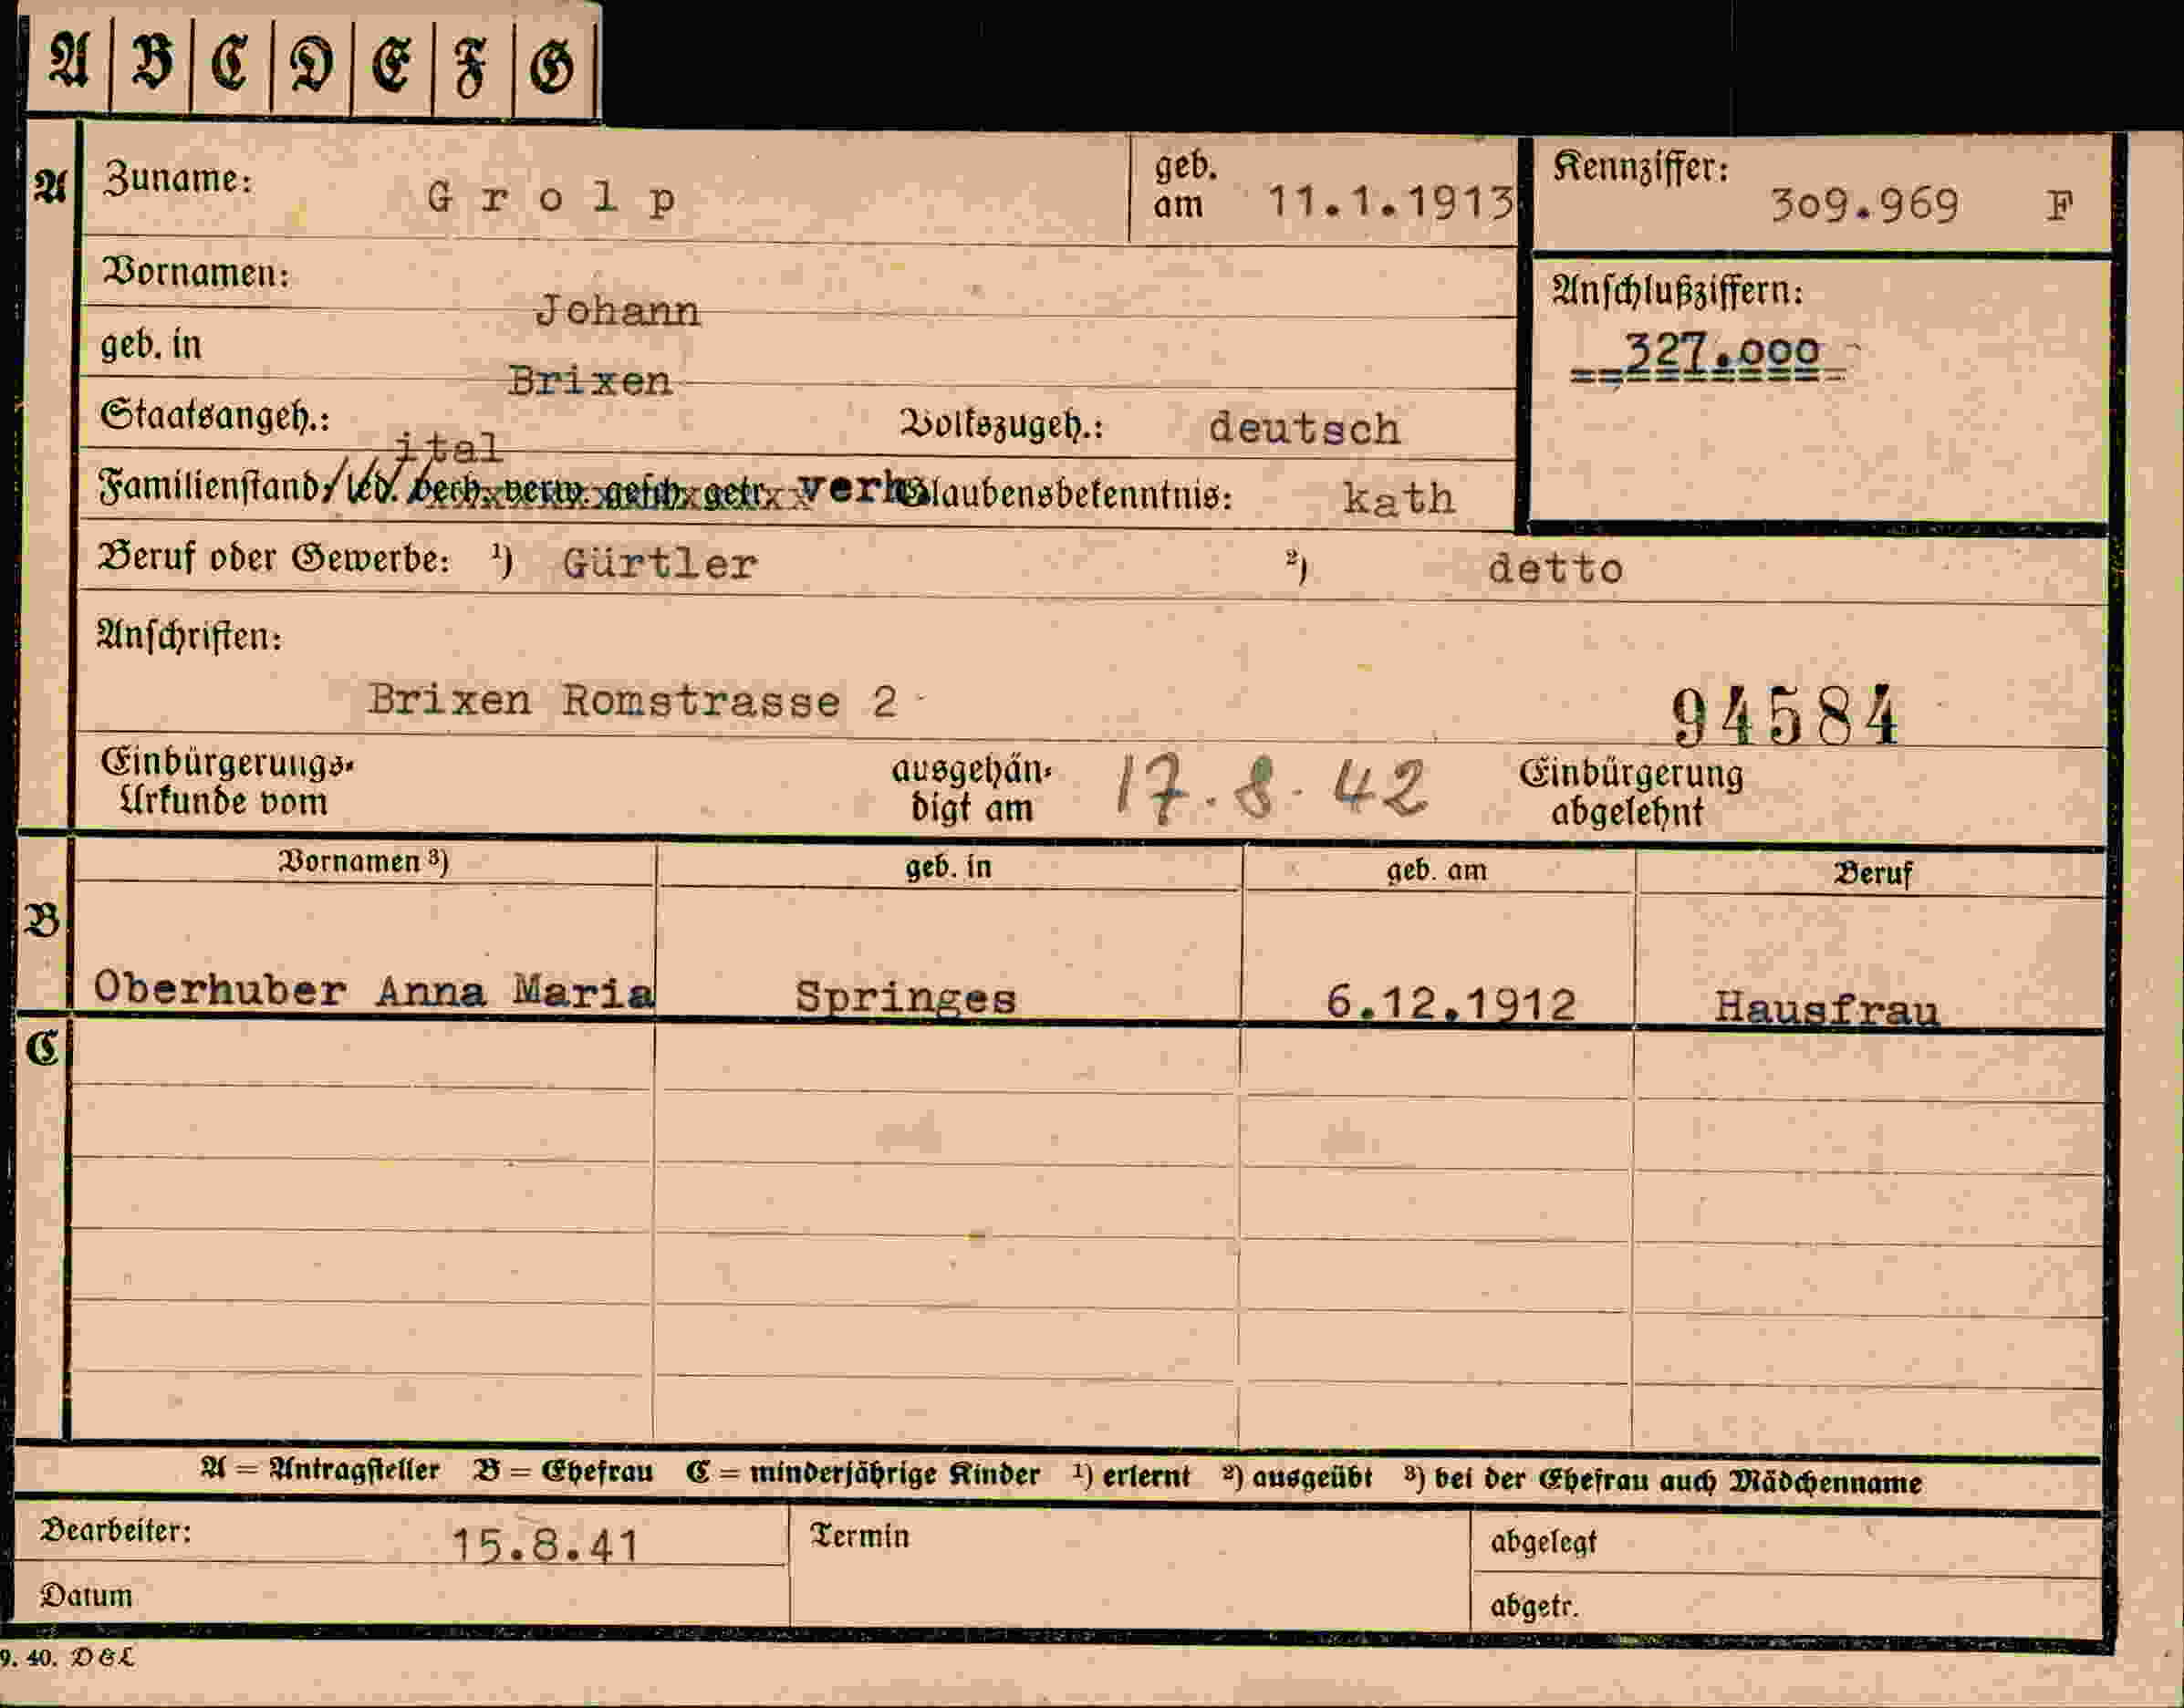 A B C D E F G
A Zuname: Grolp geb. am 11.1.1913 Kennziffer: 309.969 F
Vornamen: Johann Anschlußziffern:
327.000
geb. in Brixen
Staatsangeh.: ital Volkszugeh.: deutsch
Familienstand: led. verh. verw. gesch. getr. verh Glaubensbekenntnis: kath
Beruf oder Gewerbe: ¹) Gürtler ²) detto
Anschriften:
Brixen Romstrasse 2 94584
Einbürgerungs-Urkunde vom ausgehändigt am 17.8.42 Einbürgerung abgelehnt
Vornamen ³) geb. in geb. am Beruf
B Oberhuber Anna Maria Springes 6.12.1912 Hausfrau
C
A = Antragsteller B = Ehefrau C = minderjährige Kinder ¹) erlernt ²) ausgeübt ³) bei der Ehefrau auch Mädchenname
Bearbeiter: 15.8.41 Termin abgelegt
Datum abgetr.
9. 40. D&L